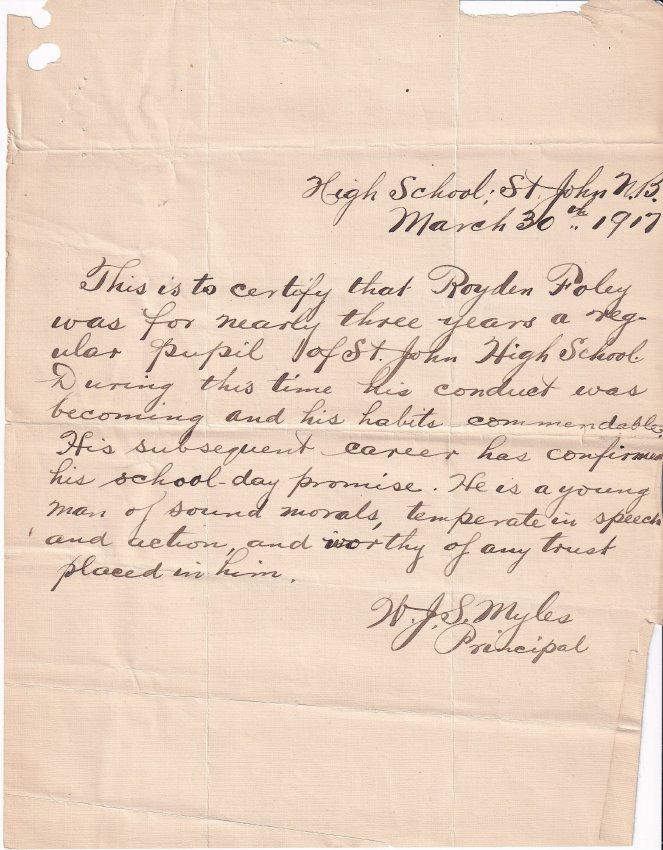 High School; St. John N.B.
March 30th. 1917
This is to certify that Royden Foley
was for nearly three years a reg-
ular pupil of St. John High School.
During this time his conduct was
becoming and his habits commendable.
His subsequent career has confirmed
his school-day promise. He is a young
man of sound morals, temperate in speech
and action, and worthy of any trust
placed in him.
W. J. S. Myles
Principal